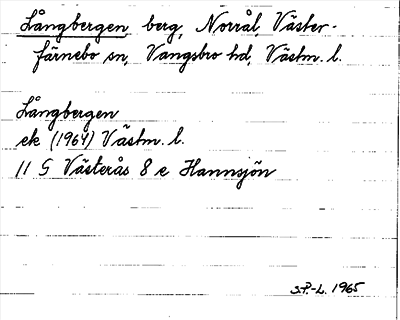 Långbergen, berg, Norrål, Väster-
färnebo sn, Vangsbro hd, Västm. l.
Långbergen
ek (1964) Västm. l.
11 G Västerås 8 e Hannsjön
S.P.-L. 1965